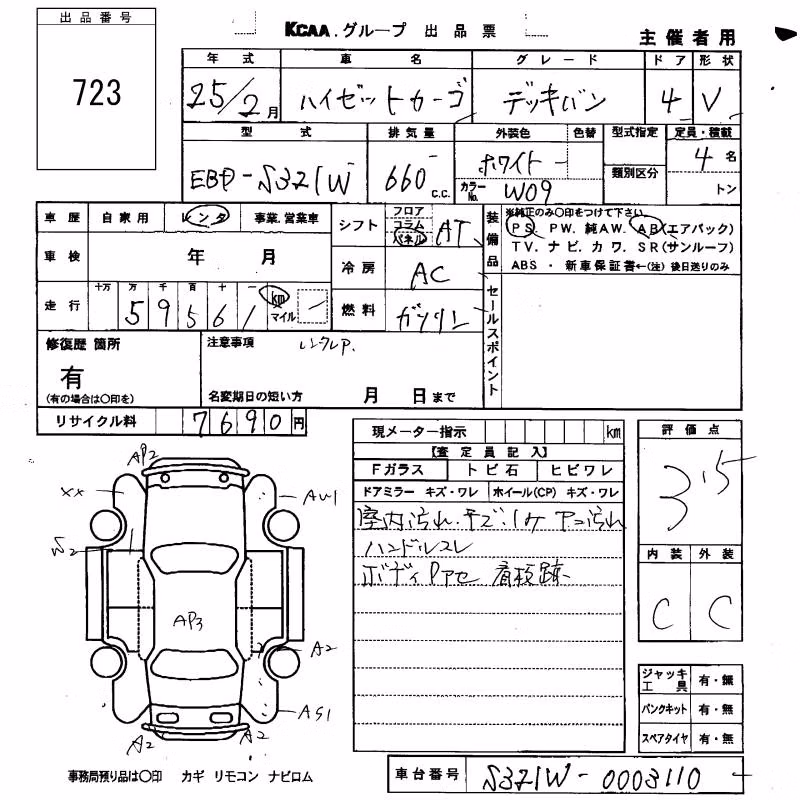 出品番号
723
KCAA.グループ 出品票
主催者用
年式 車名 グレード ドア 形状
25/2月 ハイゼットカーゴ デッキバン 4 V
型式 排気量 外装色 色替 型式指定 定員・積載
EBD-S321W 660 c.c. ホワイト
カラーNo. W09
類別区分
4名
トン
車歴 自家用 レンタ 事業.営業車
車検 年 月
走行 十万 万 千 百 十 一
59561 km マイル
シフト フロア コラム パネル AT
冷房 AC
燃料 ガソリン
装備品
※純正のみ〇印をつけて下さい
PS. PW. 純AW. AB(エアバック)
TV. ナビ. カワ. SR(サンルーフ)
ABS ・ 新車保証書←(注) 後日送りのみ
セールスポイント
修復歴 箇所
有
(有の場合は〇印を)
注意事項
名変期日の短い方 月 日まで
リサイクル料 7690円
現メーター指示 km
【査定員記入】
Fガラス トビ石 ヒビワレ
ドアミラー キズ・ワレ ホイール(CP) キズ・ワレ
室内汚れ.キズ.
ハンドルスレ
ボディPアセ 看板跡
評価点
3.5
内装 外装
C C
ジャッキ工具 有・無
パンクキット 有・無
スペアタイヤ 有・無
AP2
XX
AW1
S2
AP3
A2
AS1
A2
A2
事務局預り品は〇印 カギ リモコン ナビロム
車台番号 S321W-0003110